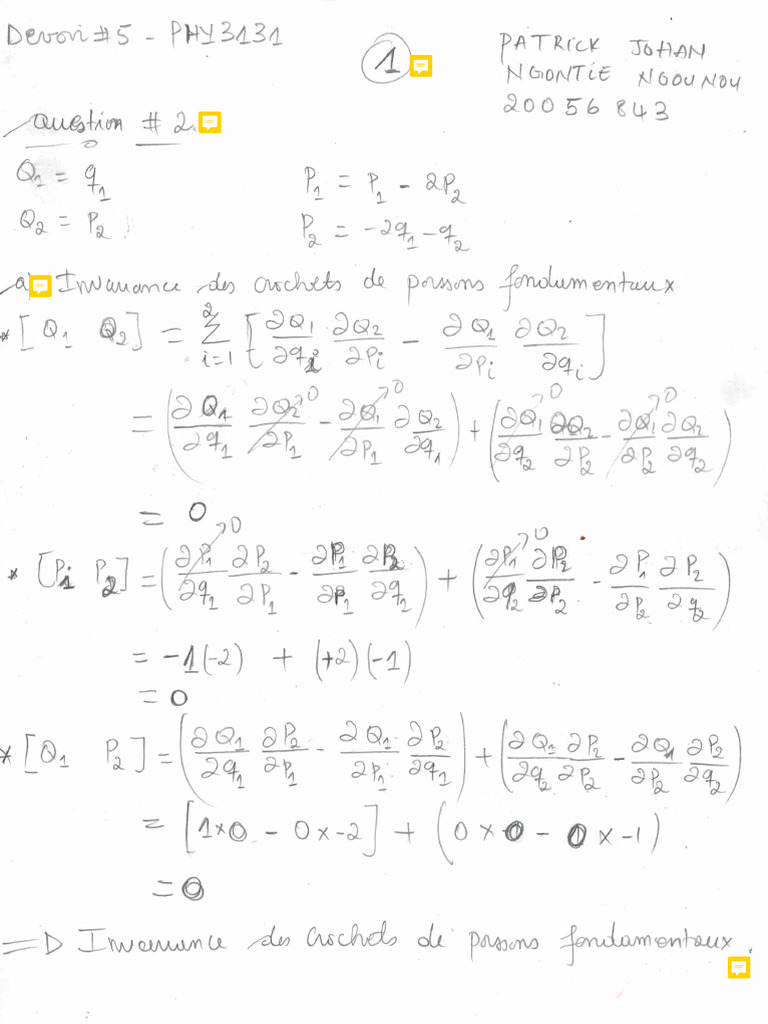 Devoir #5 - PHY3131
1
PATRICK JOHAN
NGONTIE NGOUNOU
20056843
Question # 2.
Q₁ = q₁ P₁ = P₁ - 2P₂
Q₂ = P₂ P₂ = -2q₁ - q₂
a) Invariance des crochets de poissons fondamentaux
* [Q₁ Q₂] = Σ_{i=1}^{2} [∂Q₁/∂q_i ∂Q₂/∂P_i - ∂Q₁/∂P_i ∂Q₂/∂q_i]
= (∂Q₁/∂q₁ ∂Q₂/∂P₁→0 - ∂Q₁/∂P₁→0 ∂Q₂/∂q₁) + (∂Q₁/∂q₂→0 ∂Q₂/∂P₂ - ∂Q₁/∂P₂→0 ∂Q₂/∂q₂)
= 0
* [P₁ P₂] = (∂P₁/∂q₁→0 ∂P₂/∂P₁ - ∂P₁/∂P₁ ∂P₂/∂q₁) + (∂P₁/∂q₂→0 ∂P₂/∂P₂ - ∂P₁/∂P₂ ∂P₂/∂q₂)
= -1(-2) + (+2)(-1)
= 0
* [Q₁ P₂] = (∂Q₁/∂q₁ ∂P₂/∂P₁ - ∂Q₁/∂P₁ ∂P₂/∂q₁) + (∂Q₁/∂q₂ ∂P₂/∂P₂ - ∂Q₁/∂P₂ ∂P₂/∂q₂)
= [1×0 - 0×-2] + (0×0 - 0×-1)
= 0
=D Invariance des crochets de poissons fondamentaux.